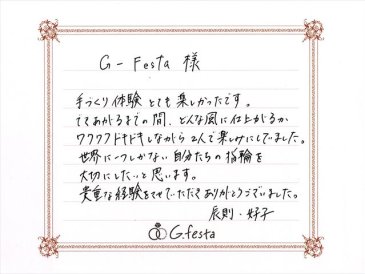 G-Festa 様
手づくり体験 とても楽しかったです。
できあがるまでの間、どんな風に仕上がるか
ワクワクドキドキしながら 2人で楽しみにしていました。
世界に一つしかない 自分たちの指輪を
大切にしたいと思います。
貴重な経験をさせていただき ありがとうございました。
辰則・好子
G.festa